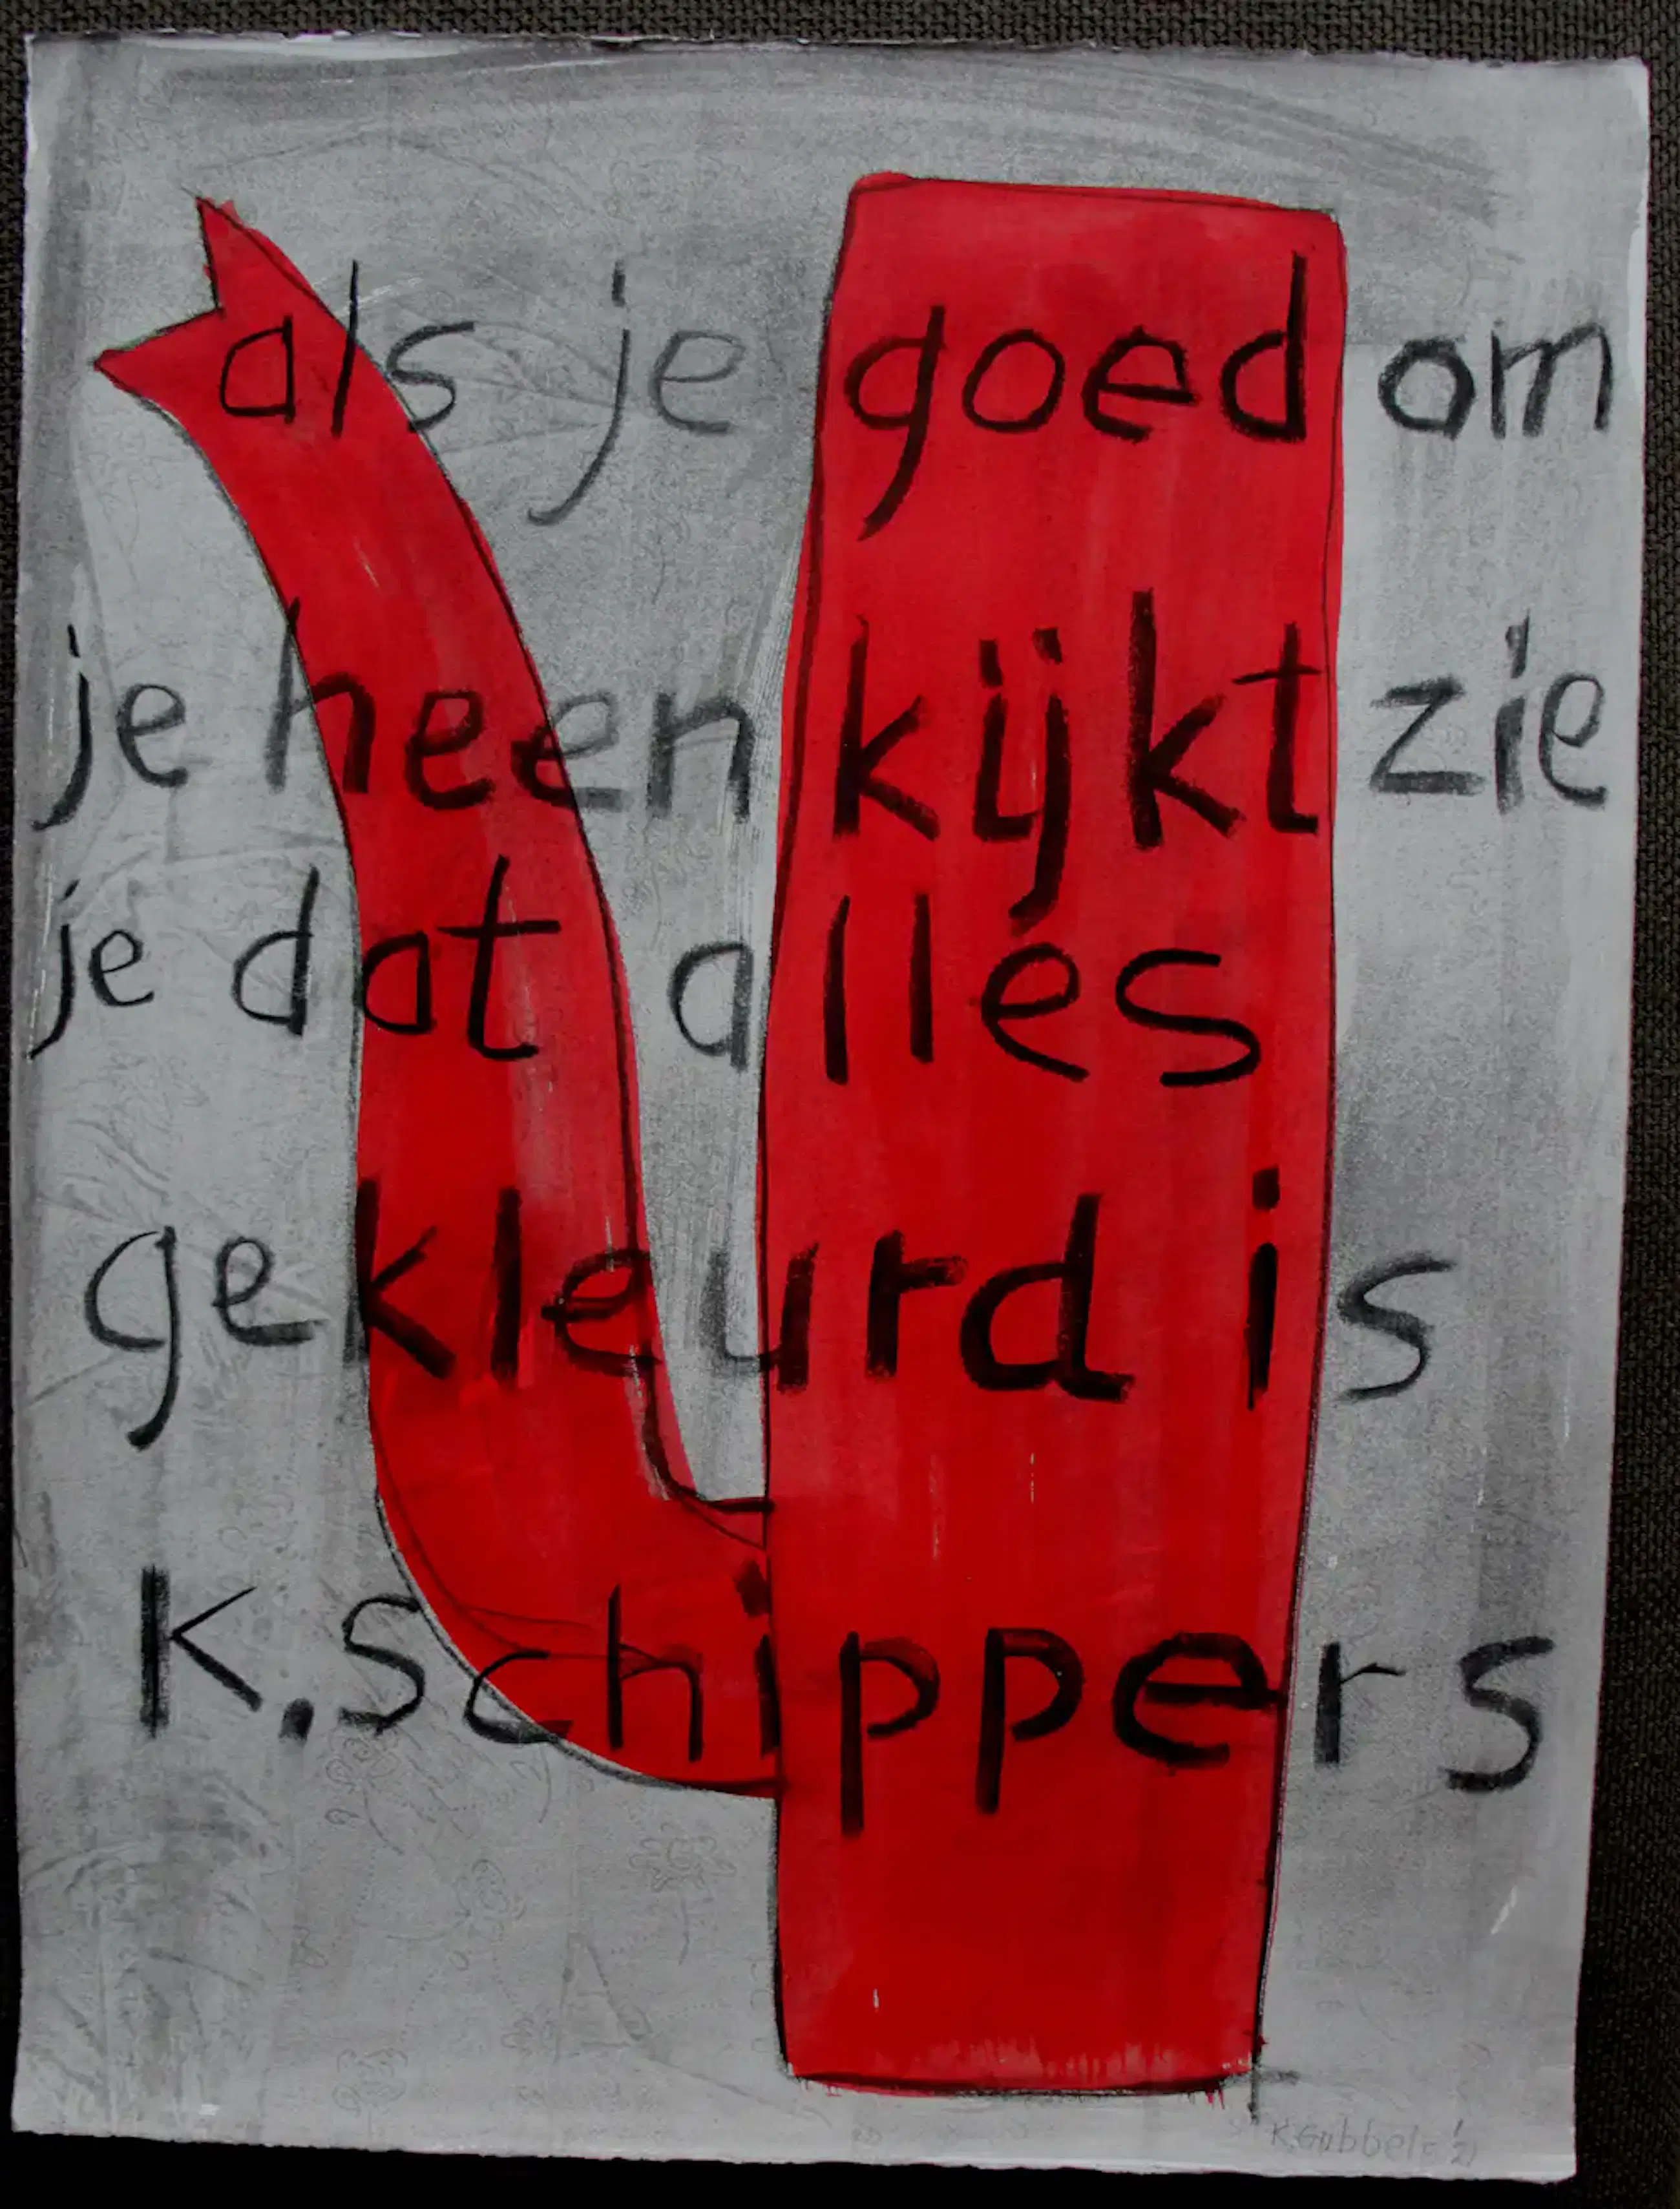 als je goed om
je heen kijkt zie
je dat alles
gekleurd is
K. Schippers
K. Gubbels '21